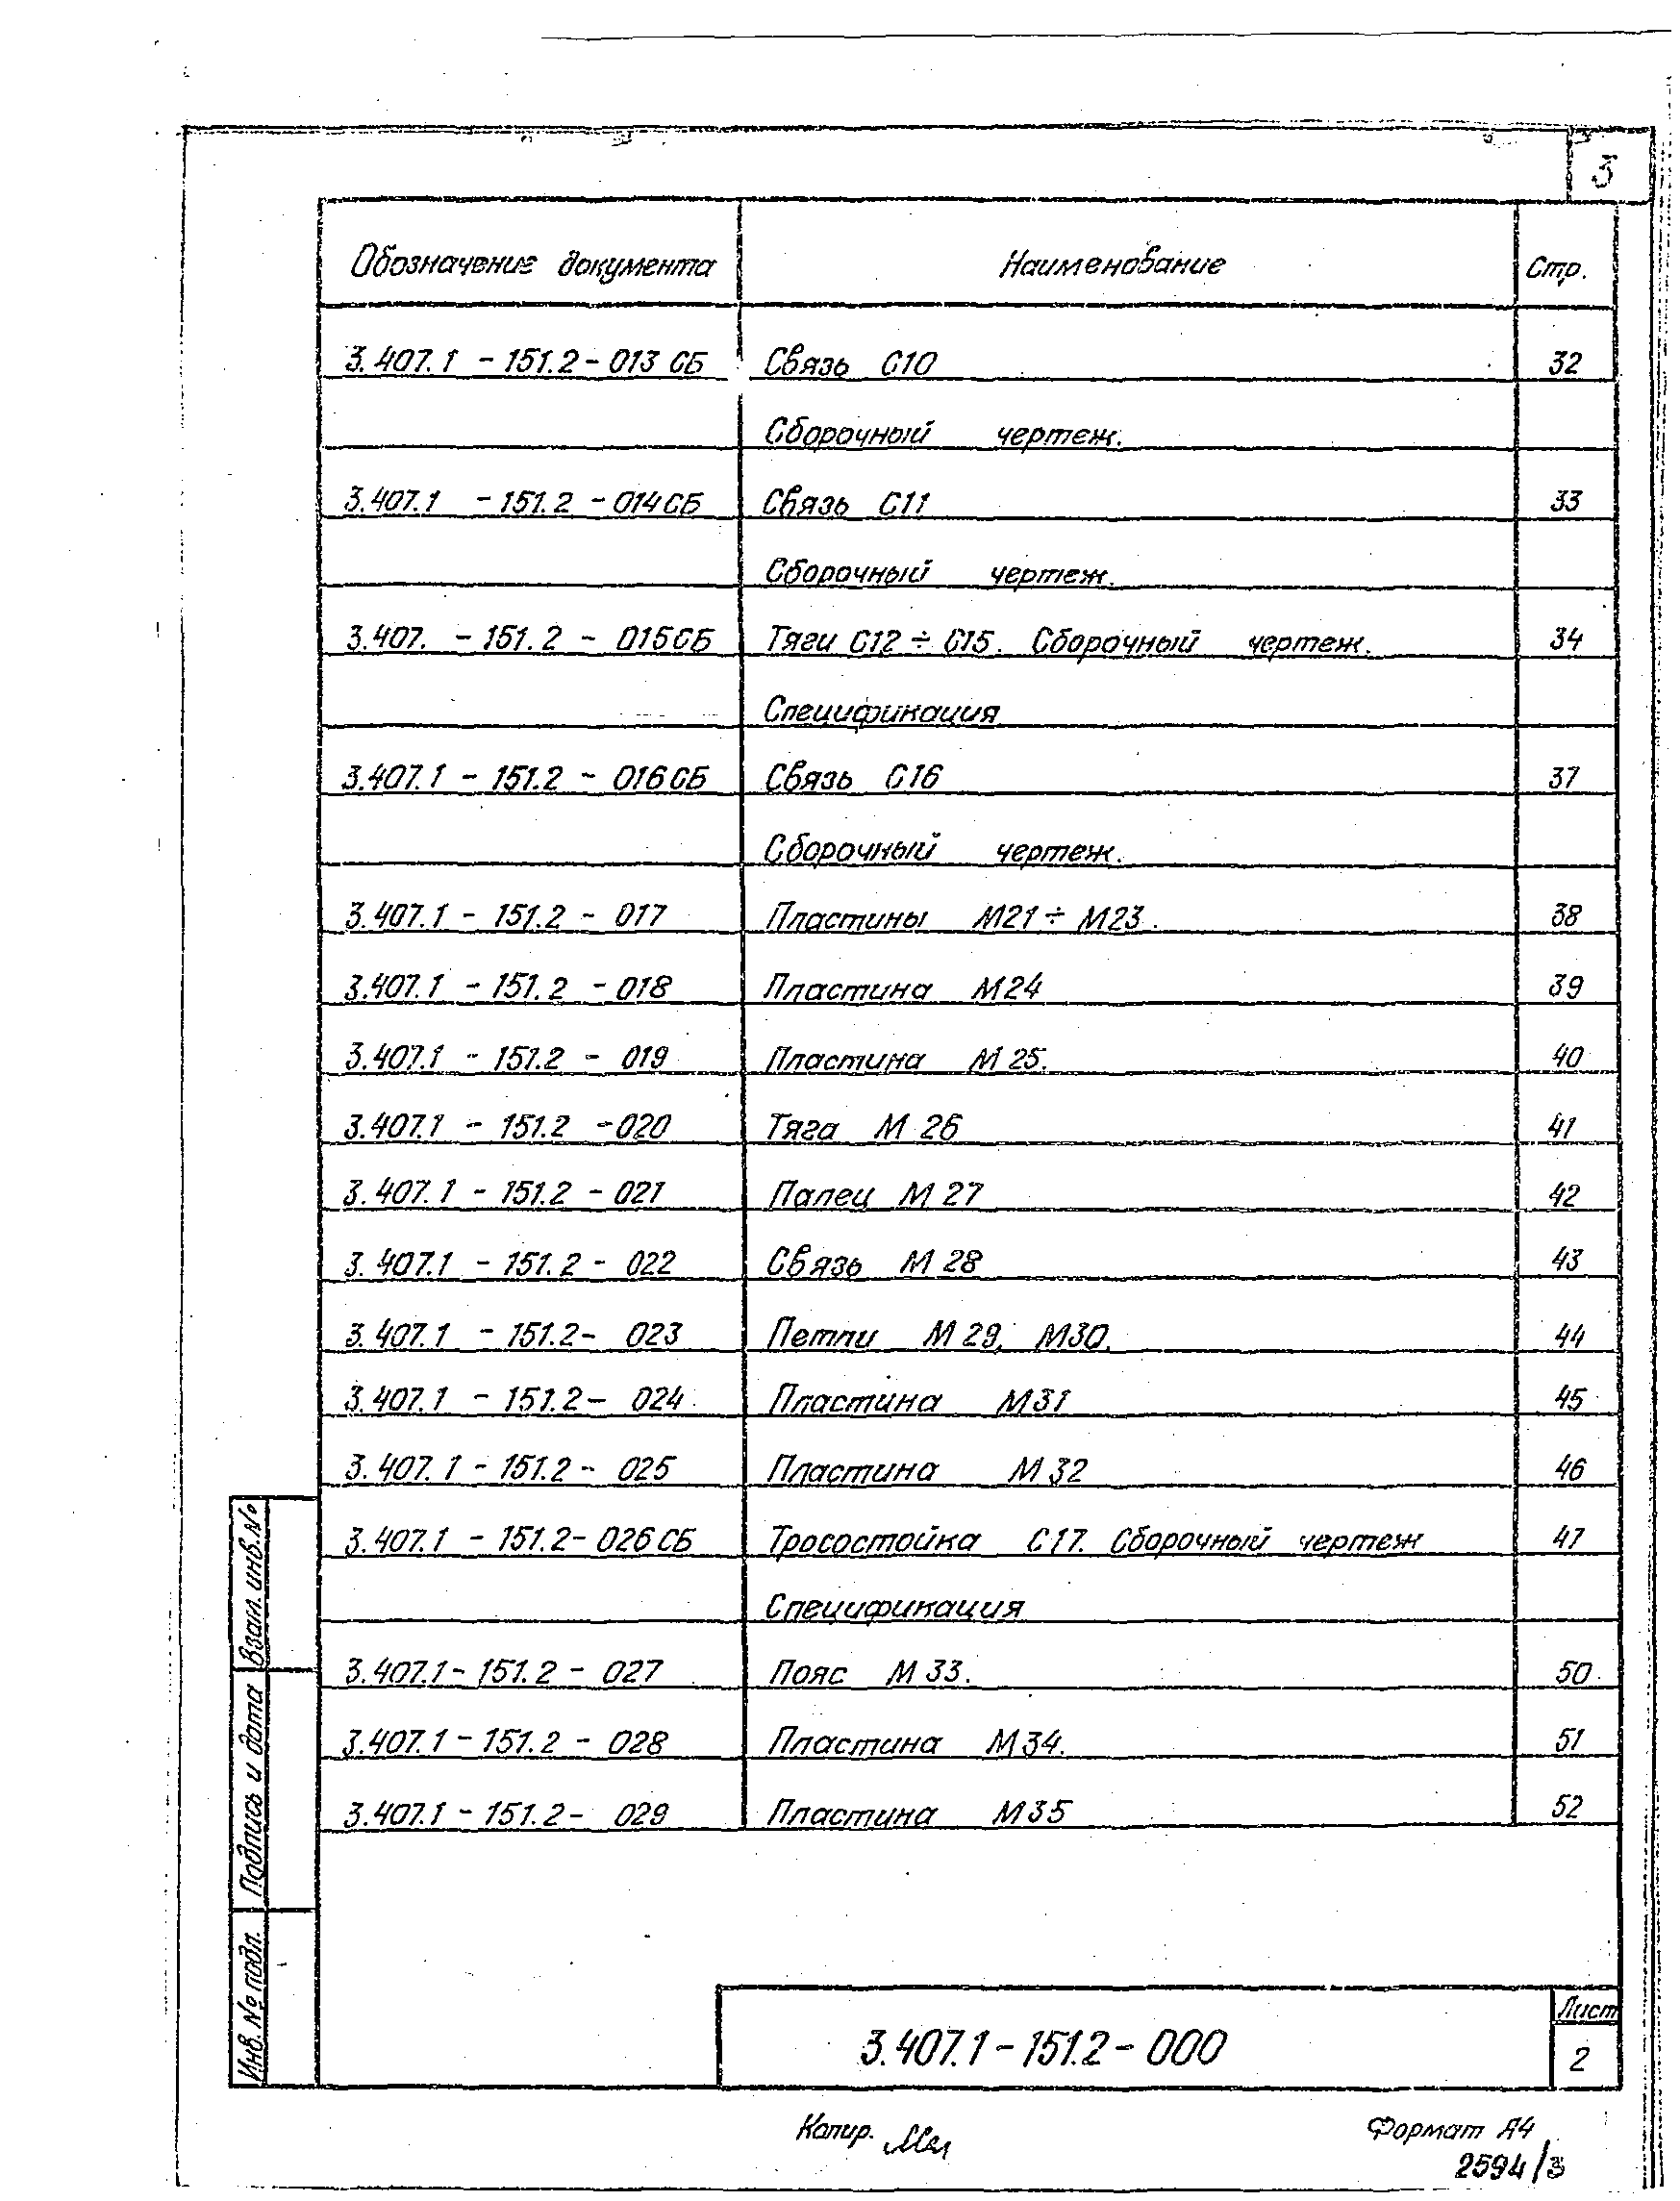 3
Обозначение документа Наименование Стр.
3.407.1 - 151.2 - 013 СБ Связь С10 32
Сборочный чертеж.
3.407.1 - 151.2 - 014 СБ Связь С11 33
Сборочный чертеж.
3.407. - 151.2 - 015 СБ Тяги С12 ÷ С15. Сборочный чертеж. 34
Спецификация
3.407.1 - 151.2 - 016 СБ Связь С16 37
Сборочный чертеж.
3.407.1 - 151.2 - 017 Пластины М21 ÷ М23. 38
3.407.1 - 151.2 - 018 Пластина М24 39
3.407.1 - 151.2 - 019 Пластина М 25. 40
3.407.1 - 151.2 - 020 Тяга М 26 41
3.407.1 - 151.2 - 021 Палец М 27 42
3.407.1 - 151.2 - 022 Связь М 28 43
3.407.1 - 151.2 - 023 Петли М 29, М30. 44
3.407.1 - 151.2 - 024 Пластина М31 45
3.407.1 - 151.2 - 025 Пластина М 32 46
3.407.1 - 151.2 - 026 СБ Тросостойка С17. Сборочный чертеж 47
Спецификация
3.407.1 - 151.2 - 027 Пояс М 33. 50
3.407.1 - 151.2 - 028 Пластина М 34. 51
3.407.1 - 151.2 - 029 Пластина М 35 52
Взам. инв. №
Подпись и дата
Инв. № подл.
3.407.1 - 151.2 - 000
Лист
2
Копир.
Формат А4
2594/3